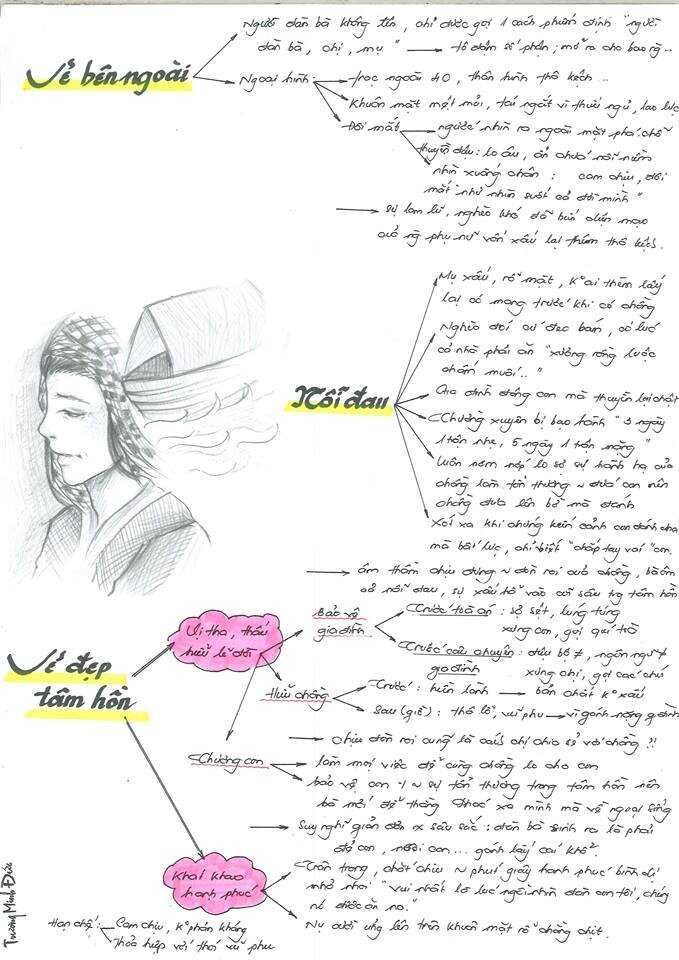 Vẻ bên ngoài
Người đàn bà không tên, chỉ được gọi 1 cách phiếm định "người
đàn bà, chị, mụ" → tô đậm số phận; mở ra cho bao ng~..
Ngoại hình:
trạc ngoài 40, thân hình thô kệch..
Khuôn mặt mệt mỏi, tái ngắt vì thức ngủ, lao lực
Đôi mắt
ngước nhìn ra ngoài mặt phá chỗ
thuyền đậu: lo âu, ẩn chứa nỗi niềm
nhìn xuống chân: cam chịu, đôi
mắt "như nhìn suốt cả đời mình"
→ sự lam lũ, nghèo khó đã diện mạo
ng phụ nữ vốn xấu lại thêm thô kệch.
Nỗi đau
Mụ xấu, rỗ mặt, k° ai thèm lấy
lại có mang trước khi có chồng
Nghèo đói cứ đeo bám, có lúc
cả nhà phải ăn "xương rồng luộc
chấm muối.."
Gia đình đông con mà thuyền lại chật
Thường xuyên bị bạo hành "3 ngày
1 trận nhẹ, 5 ngày 1 trận nặng"
Luôn nơm nớp lo sợ sự hành hạ của
chồng làm tổn thương ~ đứa con nên
chồng đưa lên bờ mà đánh
Xót xa khi chứng kiến cảnh con đánh cha
mà bất lực, chỉ biết "chắp tay vái" con.
→ âm thầm chịu đựng ~ đòn roi của chồng, bà ôm
cả nỗi đau, sự xấu hổ vào cõi sâu trg tâm hồn
Vẻ đẹp
tâm hồn
Vị tha, thấu
hiểu lẽ đời
Bảo vệ
gia đình
Trước toà án: sợ sệt, lúng túng
xưng con, gọi quí toà
Trước câu chuyện gia đình: điệu bộ ≠, ngôn ngữ ≠
xưng chị, gọi các chú
Hiểu chồng
Trước: hiền lành → bản chất k° xấu
Sau (giờ): thô lỗ, vũ phu → vì gánh nặng gia đình
→ Chịu đòn roi cũng là cách chị chia sẻ với chồng ?!
Thương con
làm mọi việc để cùng chồng lo cho con
bảo vệ con ~ sự tổn thương trong tâm hồn nên
bà mới để thằng Phác xa mình mà về ngoại sống
→ Suy nghĩ giản đơn x sâu sắc: đàn bà sinh ra là phải
đẻ con, nuôi con... gánh lấy cái khổ².
Khát khao
hạnh phúc
Trân trọng, chắt chiu ~ phút giây hạnh phúc bình dị
nhỏ nhoi "vui nhất là lúc ngồi nhìn đàn con tôi, chúng
nó được ăn no."
Nụ cười ửng lên trên khuôn mặt rỗ chằng chịt.
Hạn chế:
Cam chịu, k° phản kháng
Thỏa hiệp với thói vũ phu
Trương Minh Đức